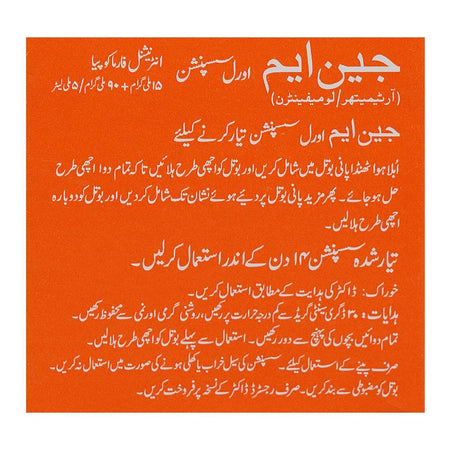 جین ایم اورل سسپنشن انٹرنیشنل فارماکوپیا
(آرٹیمیتھر/لومیفینٹرن) ۱۵ ملی گرام + ۹۰ ملی گرام/۵ ملی لیٹر
جین ایم اورل سسپنشن تیار کرنے کیلئے
اُبلا ہوا ٹھنڈا پانی بوتل میں شامل کریں اور بوتل کو اچھی طرح ہلائیں تاکہ تمام دوا اچھی طرح
حل ہو جائے۔ پھر مزید پانی بوتل پر دیئے ہوئے نشان تک شامل کردیں اور بوتل کو دوبارہ
اچھی طرح ہلالیں۔
تیار شدہ سسپنشن ۱۴ دن کے اندر استعمال کرلیں۔
خوراک: ڈاکٹر کی ہدایت کے مطابق استعمال کریں۔
ہدایات: ۳۰ ڈگری سینٹی گریڈ سے کم درجہ حرارت پر رکھیں، روشنی گرمی اور نمی سے محفوظ رکھیں۔
تمام دوائیں بچوں کی پہنچ سے دور رکھیں۔ استعمال سے پہلے بوتل کو اچھی طرح ہلالیں۔
صرف پینے کے استعمال کیلئے۔ سسپنشن کی سیل خراب یا کھلی ہونے کی صورت میں استعمال نہ کریں۔
بوتل کو مضبوطی سے بند کریں۔ صرف رجسٹرڈ ڈاکٹر کے نسخہ پر فروخت کریں۔